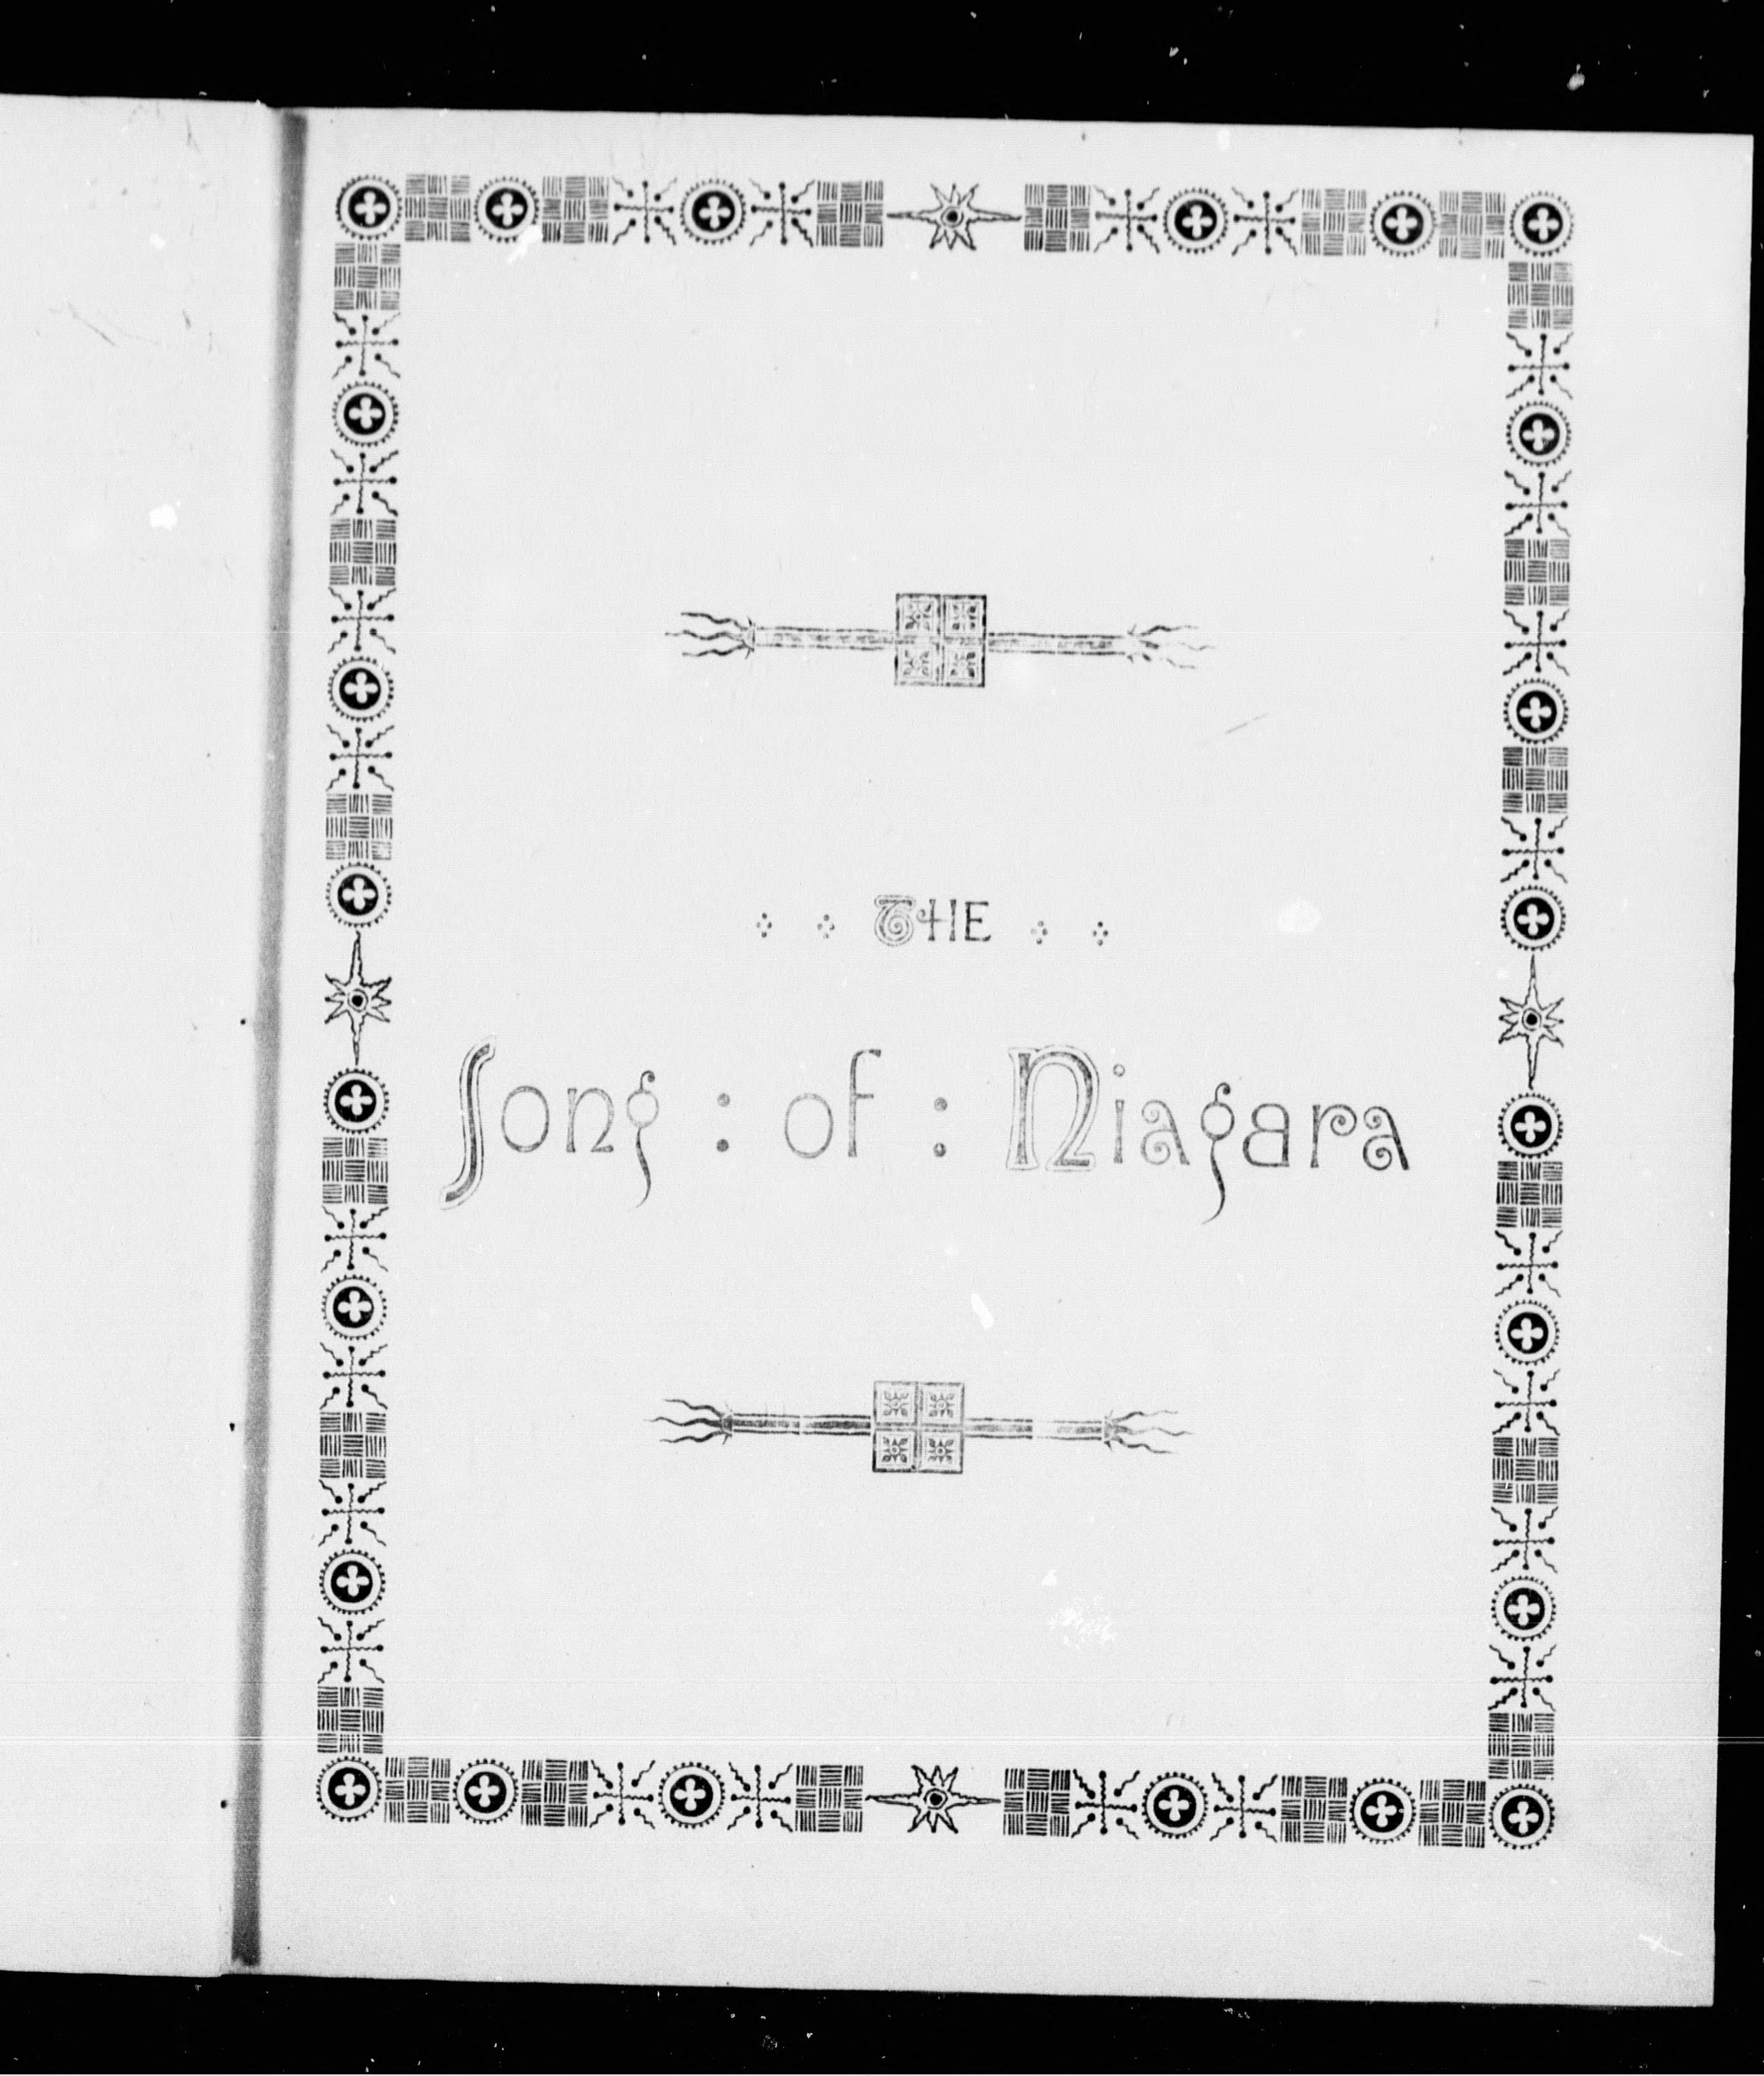 THE
Song : of : Niagara